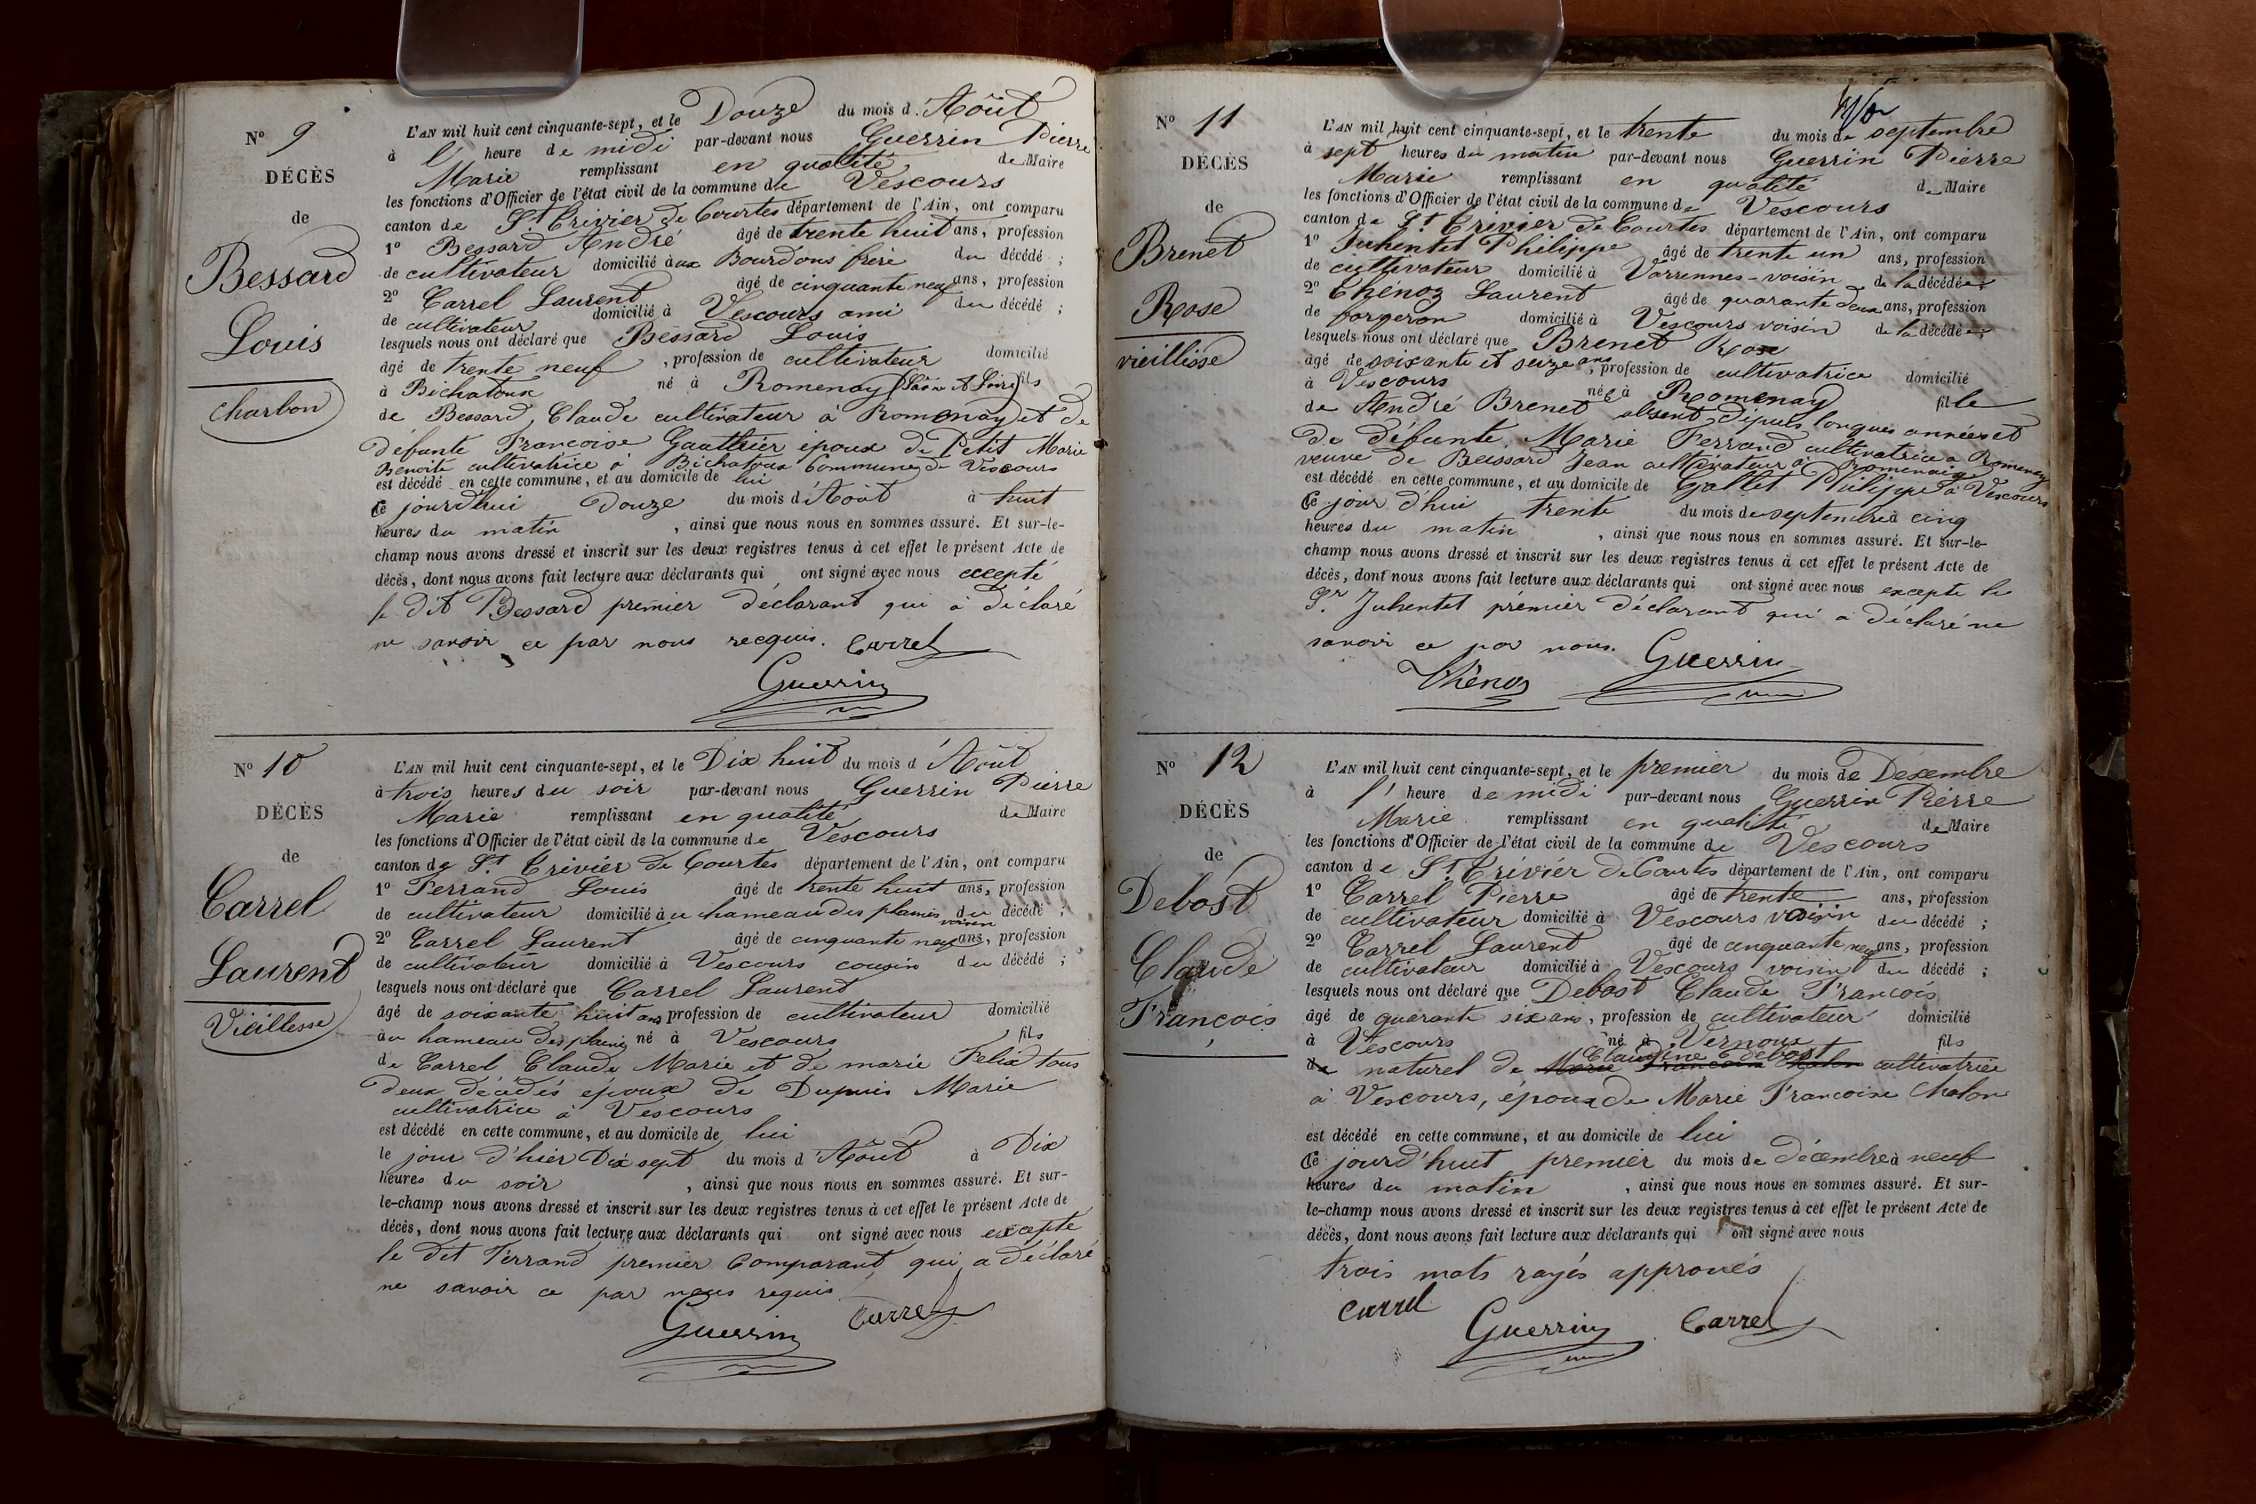 N° 9
DÉCÈS
de
Bessard
Louis
charbon
L'AN mil huit cent cinquante-sept, et le Douze du mois d'Août
à l' heure de midi par-devant nous Guerrin Pierre
Marie remplissant en qualité de Maire
les fonctions d'Officier de l'état civil de la commune de Vescours
canton de St. Trivier de Courtes département de l'Ain, ont comparu
1° Bessard André âgé de trente huit ans, profession
de cultivateur domicilié aux Bourdons frère du décédé ;
2° Carrel Laurent âgé de cinquante neuf ans, profession
de cultivateur domicilié à Vescours ami du décédé ;
lesquels nous ont déclaré que Bessard Louis
âgé de trente neuf , profession de cultivateur domicilié
à Bichatoux né à Romenay (Saône & Loire) fils
de Bessard Claude cultivateur à Romenay et de
défunte Francoise Gauthier époux de Petit Marie
Benoite cultivatrice à Bichatoux Commune de Vescours
est décédé en cette commune, et au domicile de lui
Ce jourd'hui Douze du mois d'Août à huit
heures du matin , ainsi que nous nous en sommes assuré. Et sur-le-
champ nous avons dressé et inscrit sur les deux registres tenus à cet effet le présent Acte de
décès, dont nous avons fait lecture aux déclarants qui ont signé avec nous excepté
le dit Bessard premier déclarant qui a déclaré
ne savoir ce par nous recquis. Carrel
Guerrin
N° 10
DÉCÈS
de
Carrel
Laurent
Vieillesse
L'AN mil huit cent cinquante-sept, et le Dix huit du mois d'Août
à trois heures du soir par-devant nous Guerrin Pierre
Marie remplissant en qualité de Maire
les fonctions d'Officier de l'état civil de la commune de Vescours
canton de St. Trivier de Courtes département de l'Ain, ont comparu
1° Ferrand Louis âgé de trente huit ans, profession
de cultivateur domicilié au hameau des plaines voisin du décédé ;
2° Carrel Laurent âgé de cinquante neuf ans, profession
de cultivateur domicilié à Vescours cousin du décédé ;
lesquels nous ont déclaré que Carrel Laurent
âgé de soixante huit ans profession de cultivateur domicilié
au hameau des plaines né à Vescours fils
de Carrel Claude Marie et de marie Felix tous
deux décédés époux de Dupuis Marie
cultivatrice à Vescours
est décédé en cette commune, et au domicile de lui
le jour d'hier Dix sept du mois d'Août à Dix
heures du soir , ainsi que nous nous en sommes assuré. Et sur-
le-champ nous avons dressé et inscrit sur les deux registres tenus à cet effet le présent Acte de
décès, dont nous avons fait lecture aux déclarants qui ont signé avec nous excepte
le dit Ferrand premier Comparant qui a déclaré
ne savoir ce par nous requis
Guerrin Carrel
N° 11
DÉCÈS
de
Brenet
Rose
vieillisse
L'AN mil huit cent cinquante-sept, et le trente du mois de septembre
à sept heures du matin par-devant nous Guerrin Pierre
Marie remplissant en qualité de Maire
les fonctions d'Officier de l'état civil de la commune de Vescours
canton de St Trivier de Courtes département de l'Ain, ont comparu
1° Juhentet Philippe âgé de trente un ans, profession
de cultivateur domicilié à Varennes-voisin de la décédée
2° Thénoz Laurent âgé de quarante deux ans, profession
de forgeron domicilié à Vescours voisin de la décédée
lesquels nous ont déclaré que Brenet Rose
âgé de soixante et seize ans, profession de cultivatrice domicilié
à Vescours née à Romenay fille
de André Brenet absent dépuis longues années et
de défunte Marie Ferrand cultivatrice a Romenay
veuve de Bassard Jean cultivateur à Romenay
est décédé en cette commune, et au domicile de Gallet Philippe à Vescours
Ce jour d'hui trente du mois de septembre à cinq
heures du matin , ainsi que nous nous en sommes assuré. Et sur-le-
champ nous avons dressé et inscrit sur les deux registres tenus à cet effet le présent Acte de
décès, dont nous avons fait lecture aux déclarants qui ont signé avec nous excepte le
Sr. Juhentet prémier déclarant qui a déclaré ne
savoir ce par nous. Guerrin
Thénoz
N° 12
DÉCÈS
de
Debost
Claude
François
L'AN mil huit cent cinquante-sept, et le premier du mois de Décembre
à l' heure de midi par-devant nous Guerrin Pierre
Marie remplissant en qualité de Maire
les fonctions d'Officier de l'état civil de la commune de Vescours
canton de St Trivier de Courtes département de l'Ain, ont comparu
1° Carrel Pierre âgé de trente ans, profession
de cultivateur domicilié à Vescours voisin du décédé ;
2° Carrel Laurent âgé de cinquante neuf ans, profession
de cultivateur domicilié à Vescours voisin du décédé ;
lesquels nous ont déclaré que Debost Claude François
âgé de quarante six ans, profession de cultivateur domicilié
à Vescours né à Vernoux fils
Claudine debost
de naturel de Marie Francoise Chalon cultivatrice
à Vescours, époux de Marie Francoise Chalon
est décédé en cette commune, et au domicile de lui
Ce jourd'huit premier du mois de décembre à neuf
heures du matin , ainsi que nous nous en sommes assuré. Et sur-
le-champ nous avons dressé et inscrit sur les deux registres tenus à cet effet le présent Acte de
décès, dont nous avons fait lecture aux déclarants qui ont signé avec nous
trois mots rayés approuvés
Carrel Guerrin Carrel